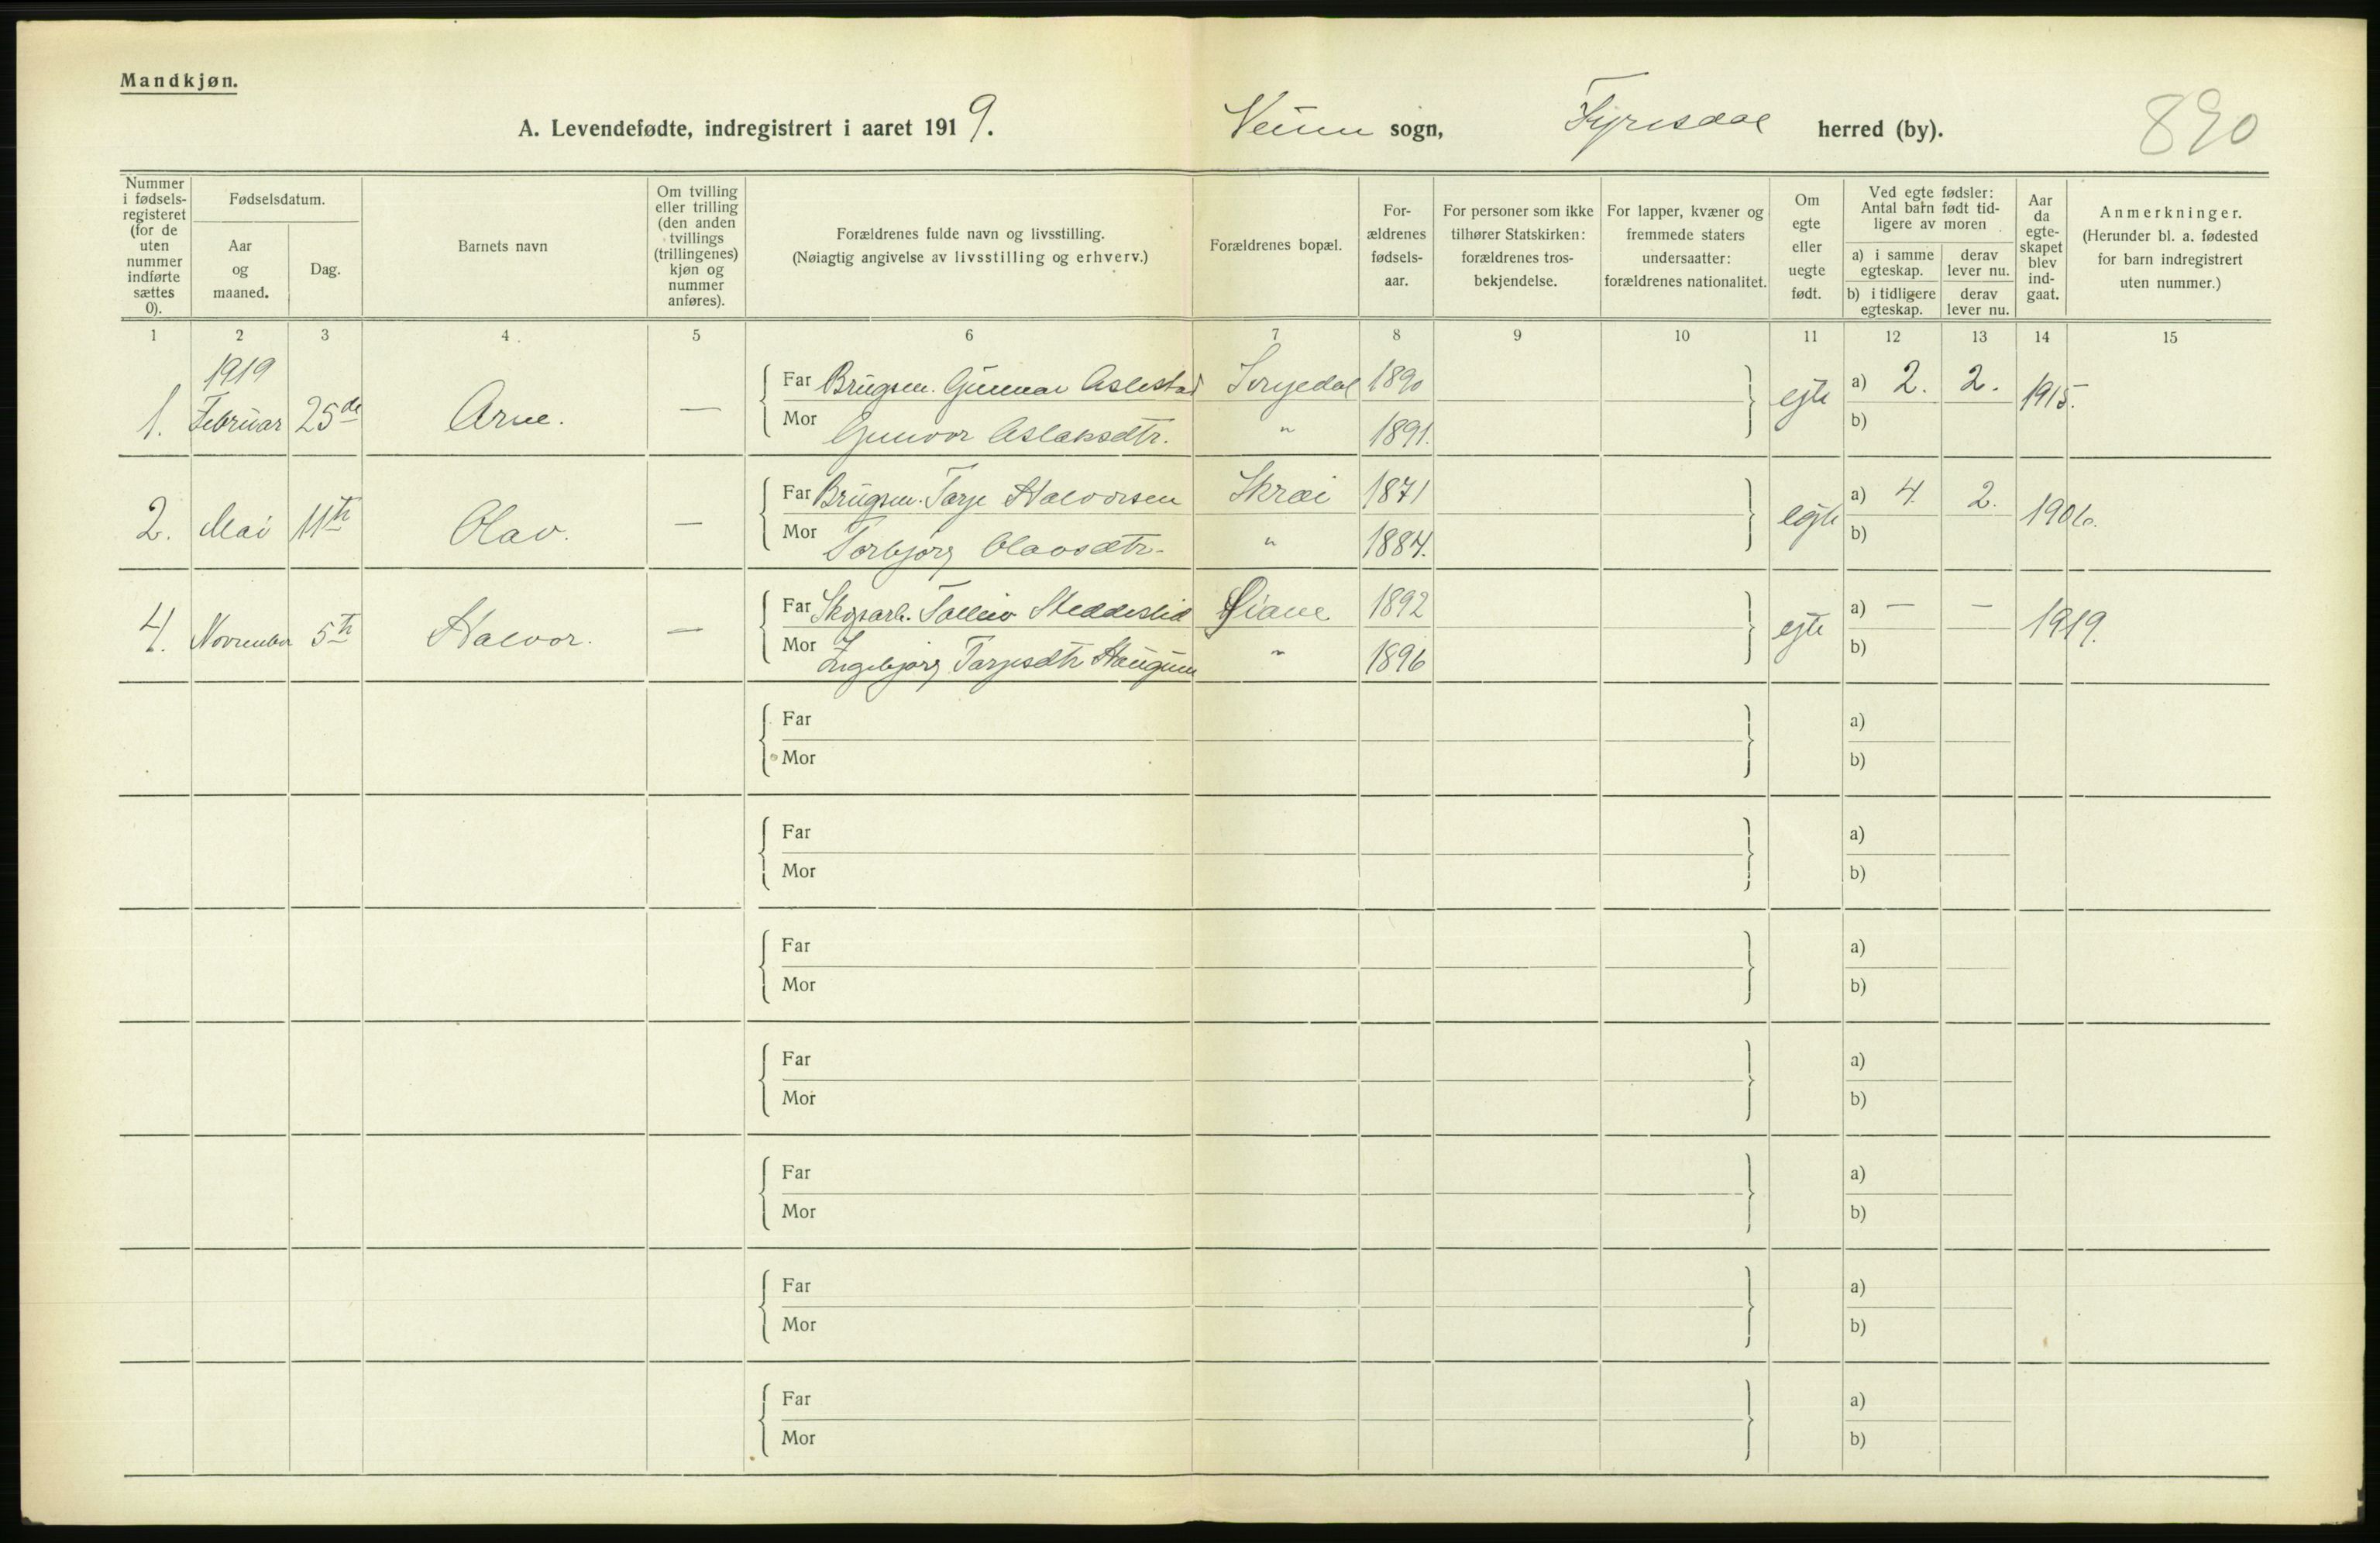 Mandkjøn.
A. Levendefødte, indregistrert i aaret 1919. Veum sogn, Fyresdal herred (by). 890
Nummer i fødselsregisteret (for de uten nummer indførte sættes 0).
Fødselsdatum.
Aar og maaned.
Dag.
Barnets navn
Om tvilling eller trilling (den anden tvillings (trillingenes) kjøn og nummer anføres).
Forældrenes fulde navn og livsstilling.
(Nøiagtig angivelse av livsstilling og erhverv.)
Forældrenes bopæl.
Forældrenes fødselsaar.
For personer som ikke tilhører Statskirken: forældrenes trosbekjendelse.
For lapper, kvæner og fremmede staters undersaatter: forældrenes nationalitet.
Om egte eller uegte født.
Ved egte fødsler: Antal barn født tidligere av moren
a) i samme egteskap.
derav lever nu.
b) i tidligere egteskap.
derav lever nu.
Aar da egteskapet blev indgaat.
Anmerkninger.
(Herunder bl. a. fødested for barn indregistrert uten nummer.)
1 2 3 4 5 6 7 8 9 10 11 12 13 14 15
1919
Far Brugsm. Gunnar Aslestad 1890 a) 2. 2.
1. Februar 25de Arne. — egte 1915.
Mor Gunvor Aslaksdtr. " 1891. b)
Far Brugsm. Tarje Halvorsen Skræi 1871 a) 4. 2.
2. Mai 11te Olav. — egte 1906.
Mor Torbjørg Olavsdtr. " 1884. b)
Far Skogsarb. Talleiv 1892 a) — —
4. November 5te Halvor. — egte 1919.
Mor Ingebjørg Tarjesdtr Haugum " 1896 b)
Far a)
Mor b)
Far a)
Mor b)
Far a)
Mor b)
Far a)
Mor b)
Far a)
Mor b)
Far a)
Mor b)
Far a)
Mor b)